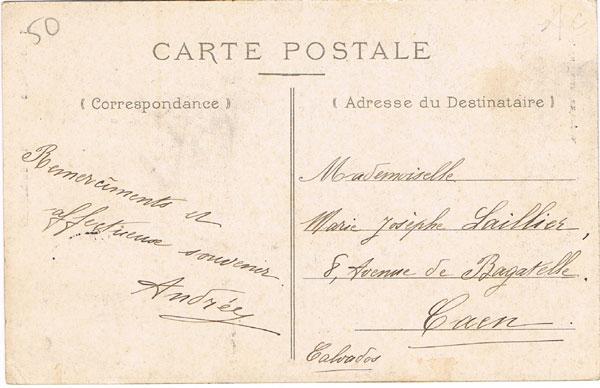 50
CARTE POSTALE
( Correspondance )
Remerciments et
affectueux souvenir.
Andrée
( Adresse du Destinataire )
Mademoiselle
Marie Josèphe Laillier,
8, Avenue de Bagatelle.
Caen
Calvados